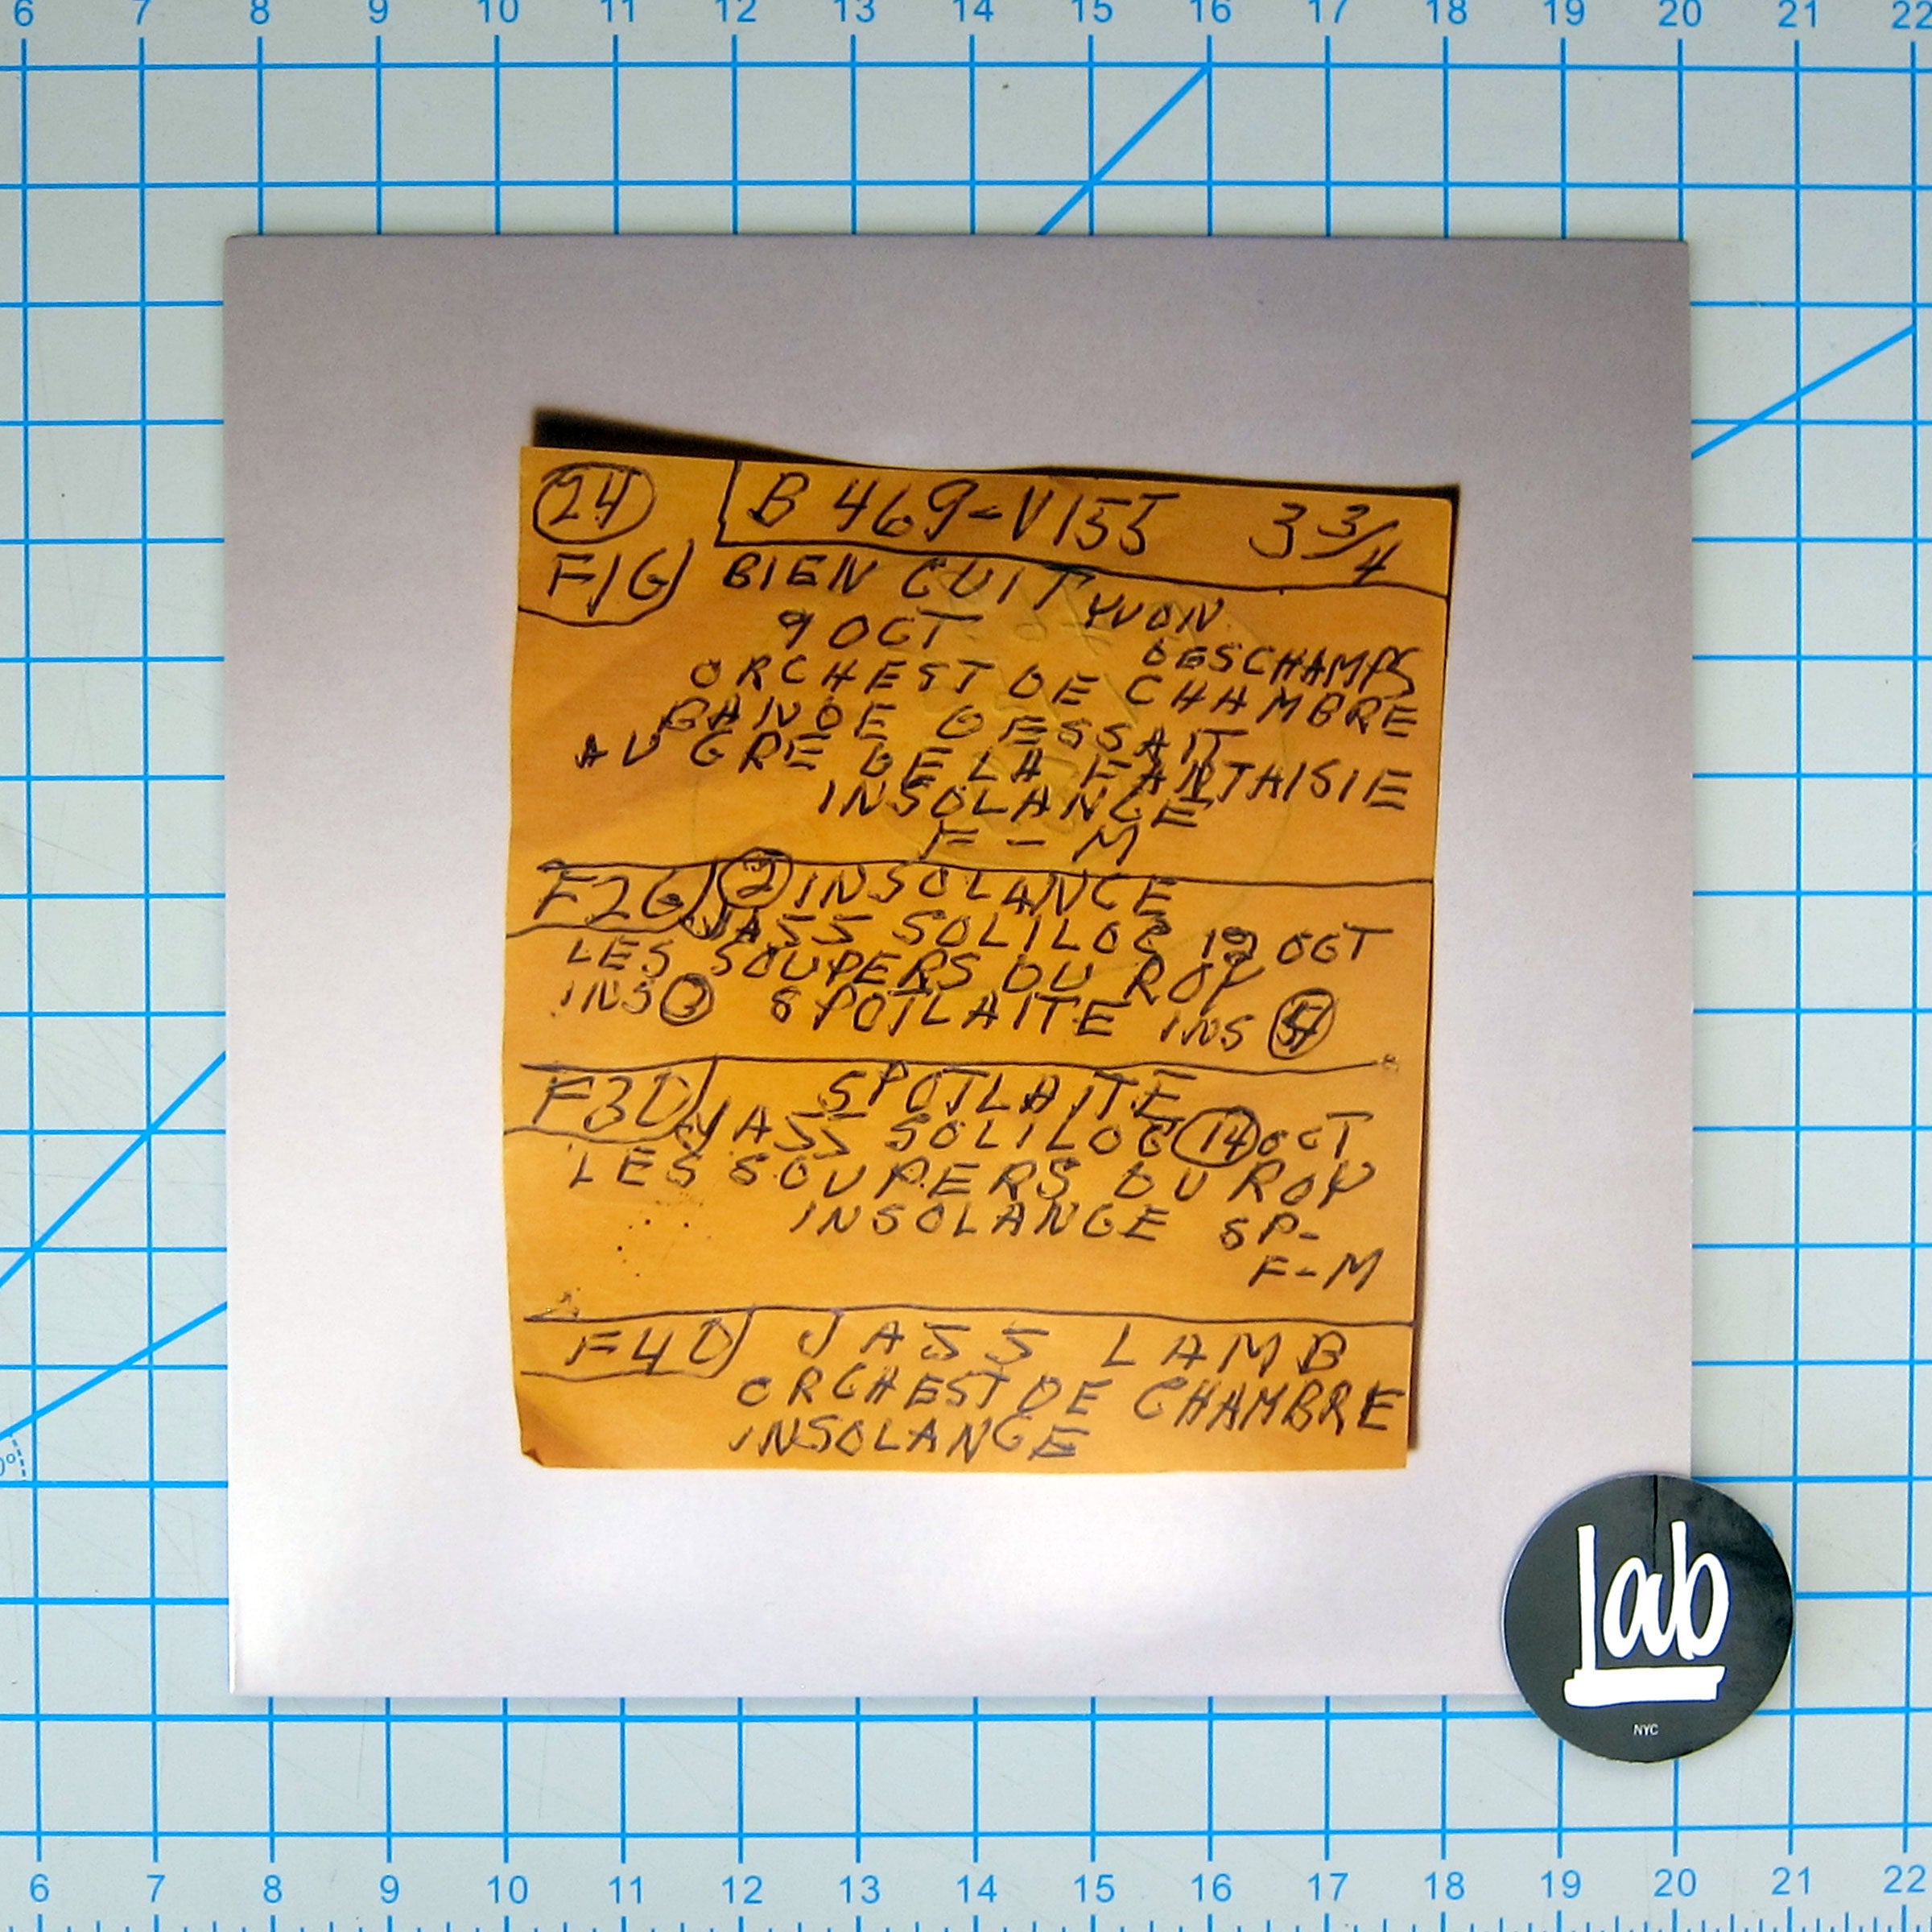 6 7 8 9 10 11 12 13 14 15 16 17 18 19 20 21 22
24 B 469-V155 3 3/4
F1G BIEN CUIT YVON
9 OCT DESCHAMPS
ORCHEST DE CHAMBRE
BANDE DESSAIT
AU GRE DE LA FANTAISIE
INSOLANCE
F-M
F2G 2 INSOLANCE
JASS SOLILOC 12 OCT
LES SOUPERS DU ROY
INS 3 SPOTLAITE INS
F3D SPOTLAITE
JASS SOLILOC 14 OCT
LES SOUPERS DU ROY
INSOLANCE SP-
F-M
F4D JASS LAMB
ORCHEST DE CHAMBRE
INSOLANCE
Lab
NYC
6 7 8 9 10 11 12 13 14 15 16 17 18 19 20 21 22